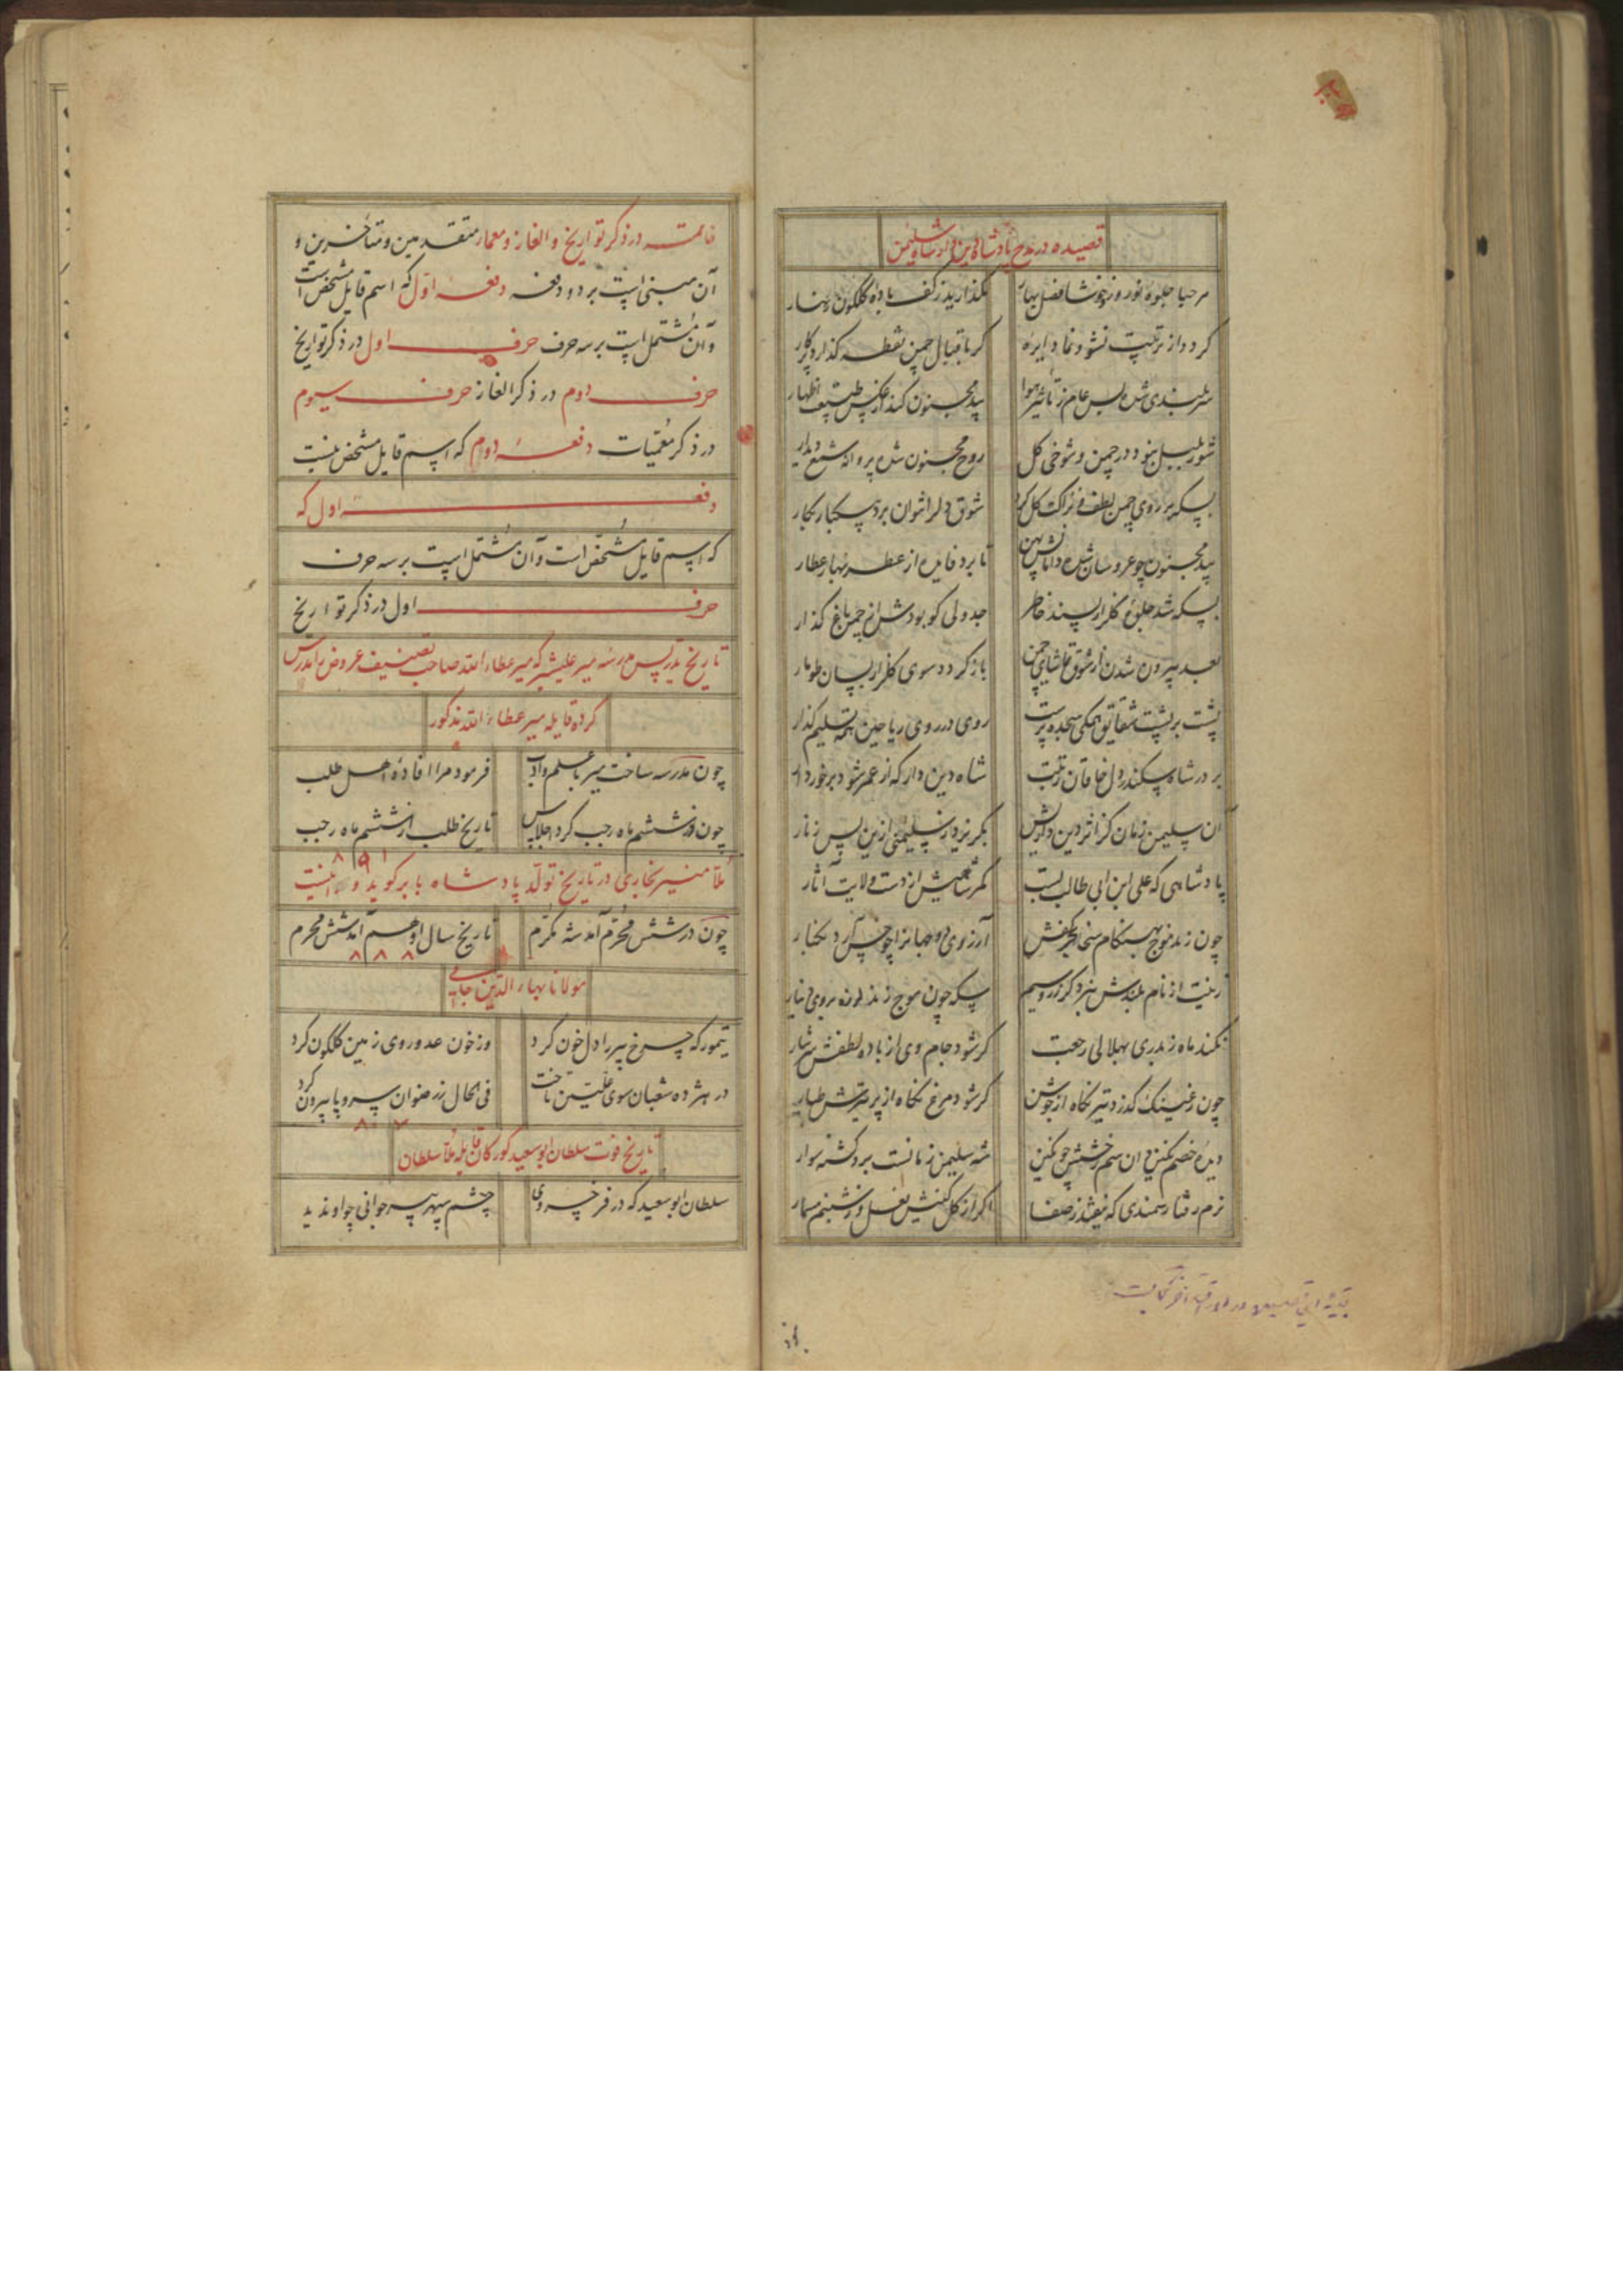 قصیده در مدح پادشاه دین دار شاه سلیمن
مرحبا جلوه نوروز خوشا فصل بهار
مکذارید ز کف باده کلکون زنهار
کرد از تربیت نشو و نما دایره
کر باقبال چمن نقطه کذارد پرکار
سربلندی شده بس عام ز تاثیر هوا
بید مجنون کند از عکس طبیعت اظهار
شور بلبل بنود در چمن و شوخی کل
روح مجنون شده پروانه شمع دیدار
بسکه بر روی چمن لطف و نزاکت کل کرد
شوق دلرا نتوان برد بسکبار بکار
بید مجنون چو عروسان شده دامانش پهن
تا برد فایده از عطر بهار عطار
بسکه شد جلوه کلزار پسند خاطر
جدولی کو بودش از چمن باغ کذار
بعد بیرون شدن از شوق تماشای چمن
باز کردد سوی کلزار بسان طومار
پشت بر پشت شقایق همکی سجده پرست
روی در روی ریاحین همه تسلیم کذار
بر در شاه سکندر دل خاقان رتبت
شاه دین دار که از عمر شود برخوردار
آن سلیمن زمان کز اثر دین داریش
بکریزد ز سلیمنی ازین پس زنار
پادشاهی که علی ابن ابی طالب بست
کمر شاهیش از دست ولایت آثار
چون زند موج بهنکام سخا بحر کفش
آرزوی دو جهانرا چو خس آرد بکنار
زینت از نام بلندش نبرد کر زر و سیم
سکه چون موج زند لرزه بروی دینار
نکند ماه ز بدری بهلالی رجعت
کر شود جام وی از باده لطفش سرشار
چون ز عینک کذرد تیر نکاه از جوشن
کر شود مرغ نکاه از پر تیرش طیار
دیده خصم نکین و ان سم رخشش چو نکین
شه سلیمن زمانست برو کشته سوار
نرم رفتار سمندی که نیفتد ز صفا
اکر از کل کنیش نعل و ز شبنم مسمار
بقیه این قصیده در ورق آخر کتابست
خاتمه در ذکر تواریخ و الغاز و معمای متقدمین و متاخرین و
آن مبنی است بر دو دفعه دفعه اول که اسم قایل مشخص است
و آن مشتمل است بر سه حرف حرف اول در ذکر تواریخ
حرف دوم در ذکر الغاز حرف سیوم
در ذکر معمیات دفعه دوم که اسم قایل مشخص نیست
دفعه اول که
که اسم قایل مشخص است و آن مشتمل است بر سه حرف
حرف اول در ذکر تواریخ
تاریخ تدریس مدرسه میر علیشیر که میر عطاء الله صاحب تصنیف عروض بآن درس
کرده قایله میر عطاء الله مذکور
چون مدرسه ساخت میر با علم و ادب
فرمود مرا افاده اهل طلب
چون در ششم ماه رجب کرد اجلاس
تاریخ طلب از ششم ماه رجب
۸۹۱
ملا منیر بخاری در تاریخ تولد پادشاه بابر کوید و اینست
چون در شش محرم آمد شه مکرم
تاریخ سال او هم آمد شش محرم
۸۸۸
مولانا بهاء الدین جامی
تیمور که چرخ پیر را دل خون کرد
وز خون عدو روی زمین کلکون کرد
در هژده شعبان سوی علیین تاخت
فی الحال ز رضوان سر و پا بیرون کرد
۸۰۷
تاریخ فوت سلطان ابو سعید کورکان قایله ملا سلطان
سلطان ابو سعید که در فر خسروی
چشم سپهر پیر جوانی چو او ندید